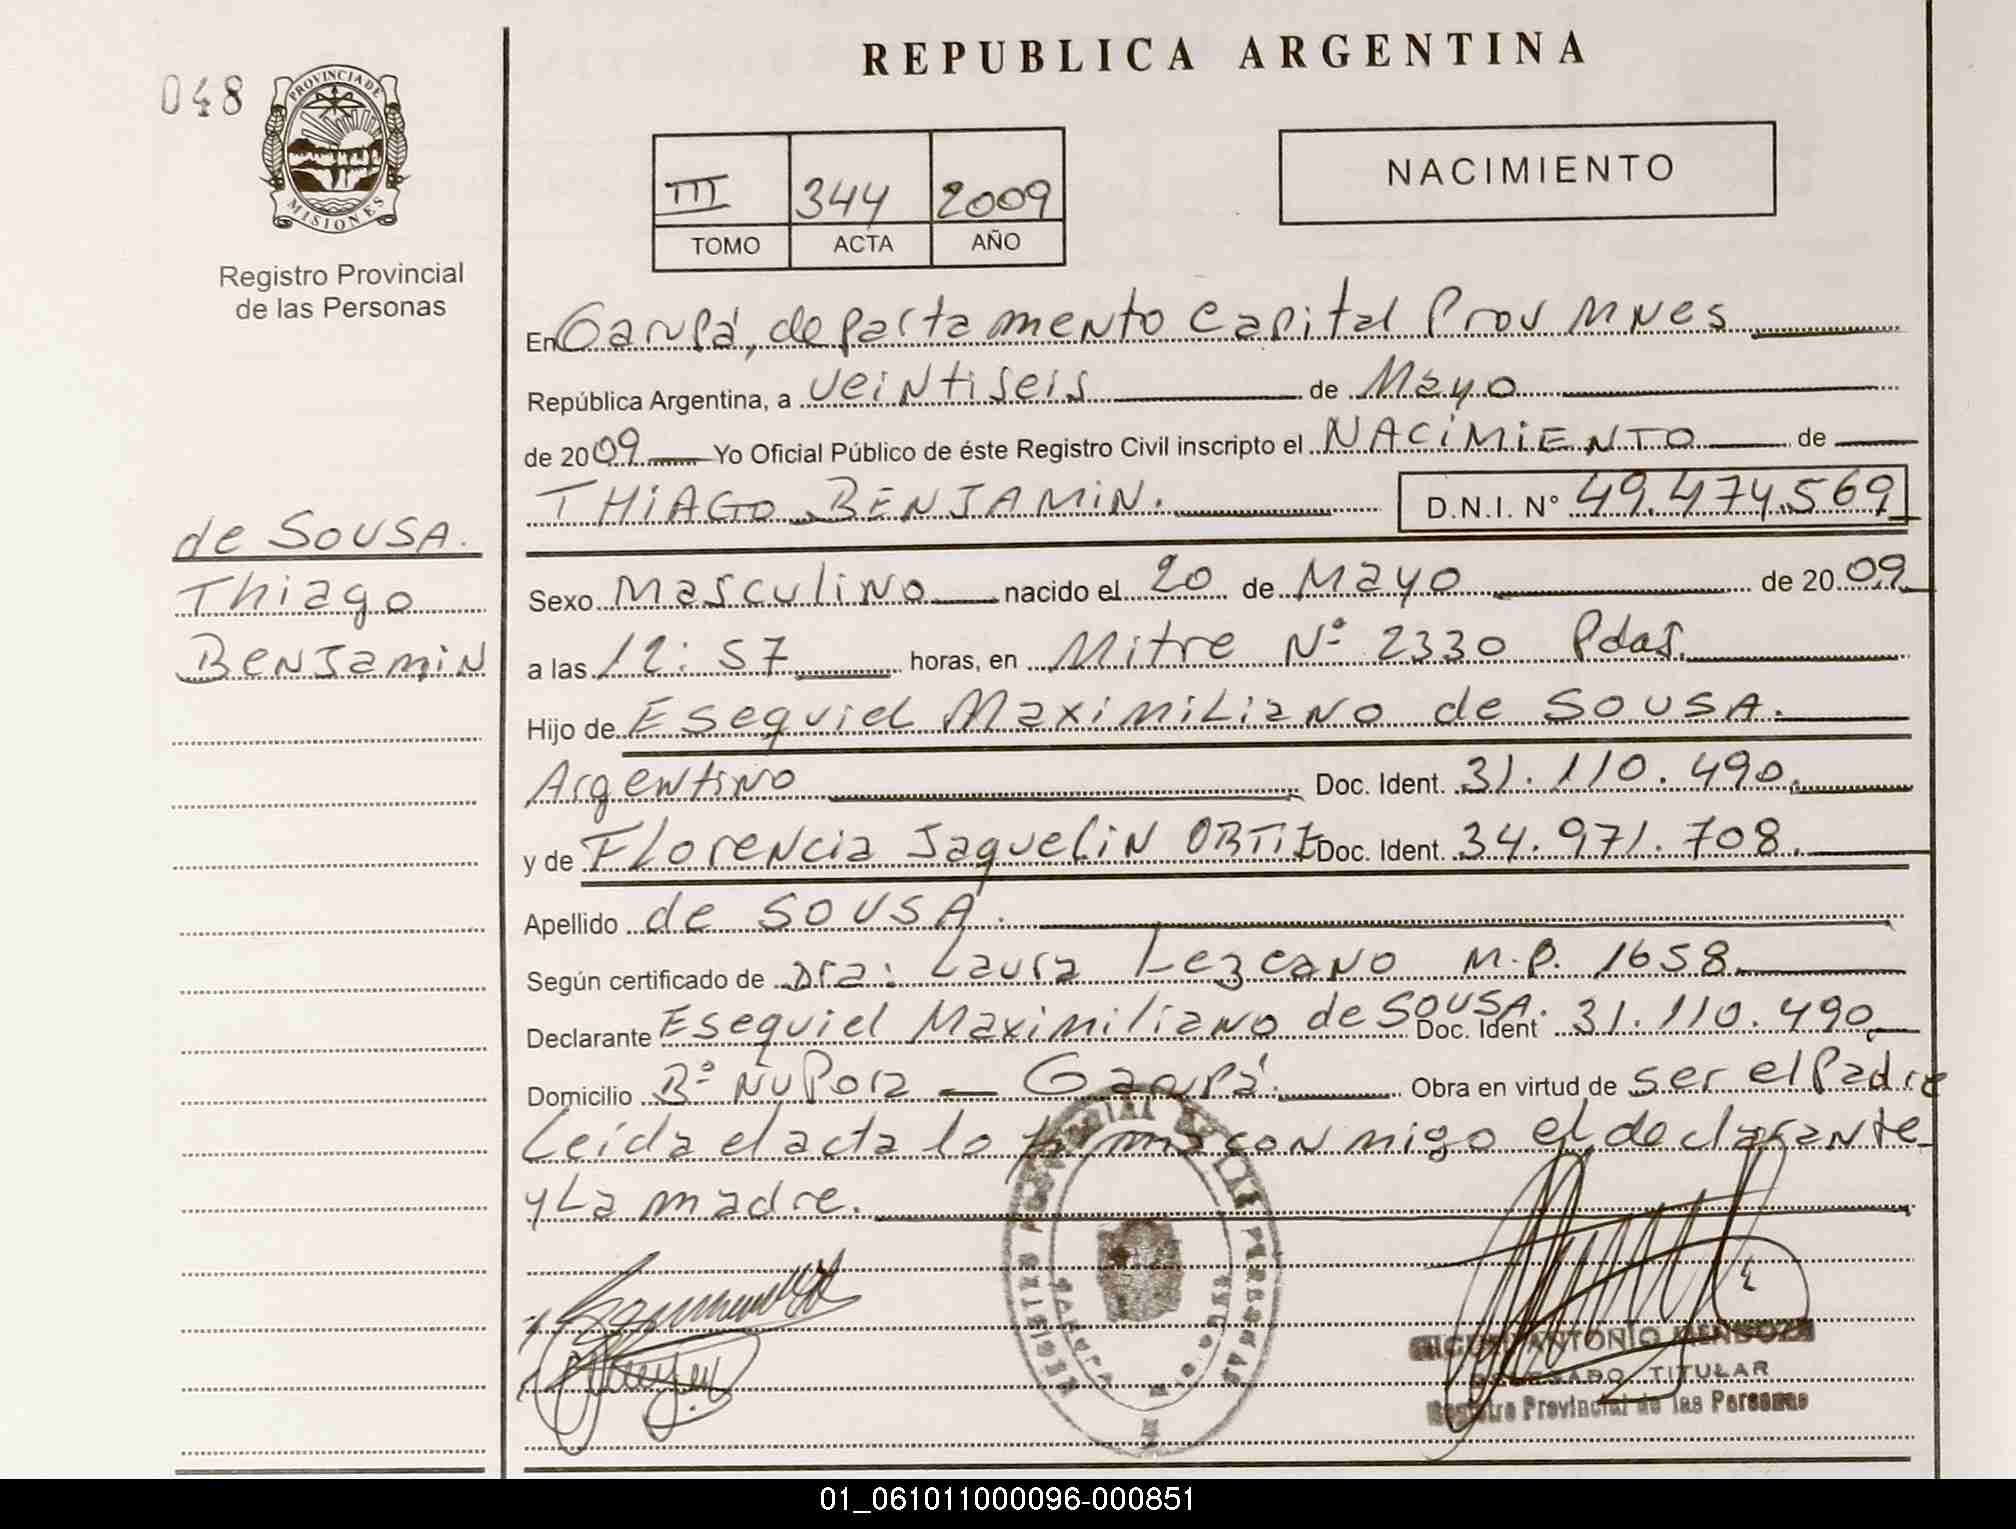 REPUBLICA ARGENTINA
048
PROVINCIA DE
MISIONES
Registro Provincial
de las Personas
III 344 2009
TOMO ACTA AÑO
NACIMIENTO
En Garupá, departamento Capital Prov Mnes
República Argentina, a veintiseis de Mayo
de 2009 Yo Oficial Público de éste Registro Civil inscripto el NACIMIENTO de
THIAGO BENJAMIN. D.N.I. N° 49.474.569
de SOUSA.
Thiago
Benjamin
Sexo Masculino nacido el 20 de Mayo de 2009
a las 12:57 horas, en Mitre Nº 2330 Pdas.
Hijo de Esequiel Maximiliano de SOUSA.
Argentino Doc. Ident. 31.110.490.
y de Florencia Jaquelin ORTIZ Doc. Ident. 34.971.708.
Apellido de SOUSA.
Según certificado de Dra: Laura Lezcano M.P. 1658.
Declarante Esequiel Maximiliano de SOUSA. Doc. Ident 31.110.490
Domicilio Bº Ñu Pora - Garupá. Obra en virtud de ser el Padre
Leida el acta lo firma conmigo el declarante
y La madre.
ANTONIO MENDOZA
TITULAR
Registro Provincial de las Personas
01_061011000096-000851